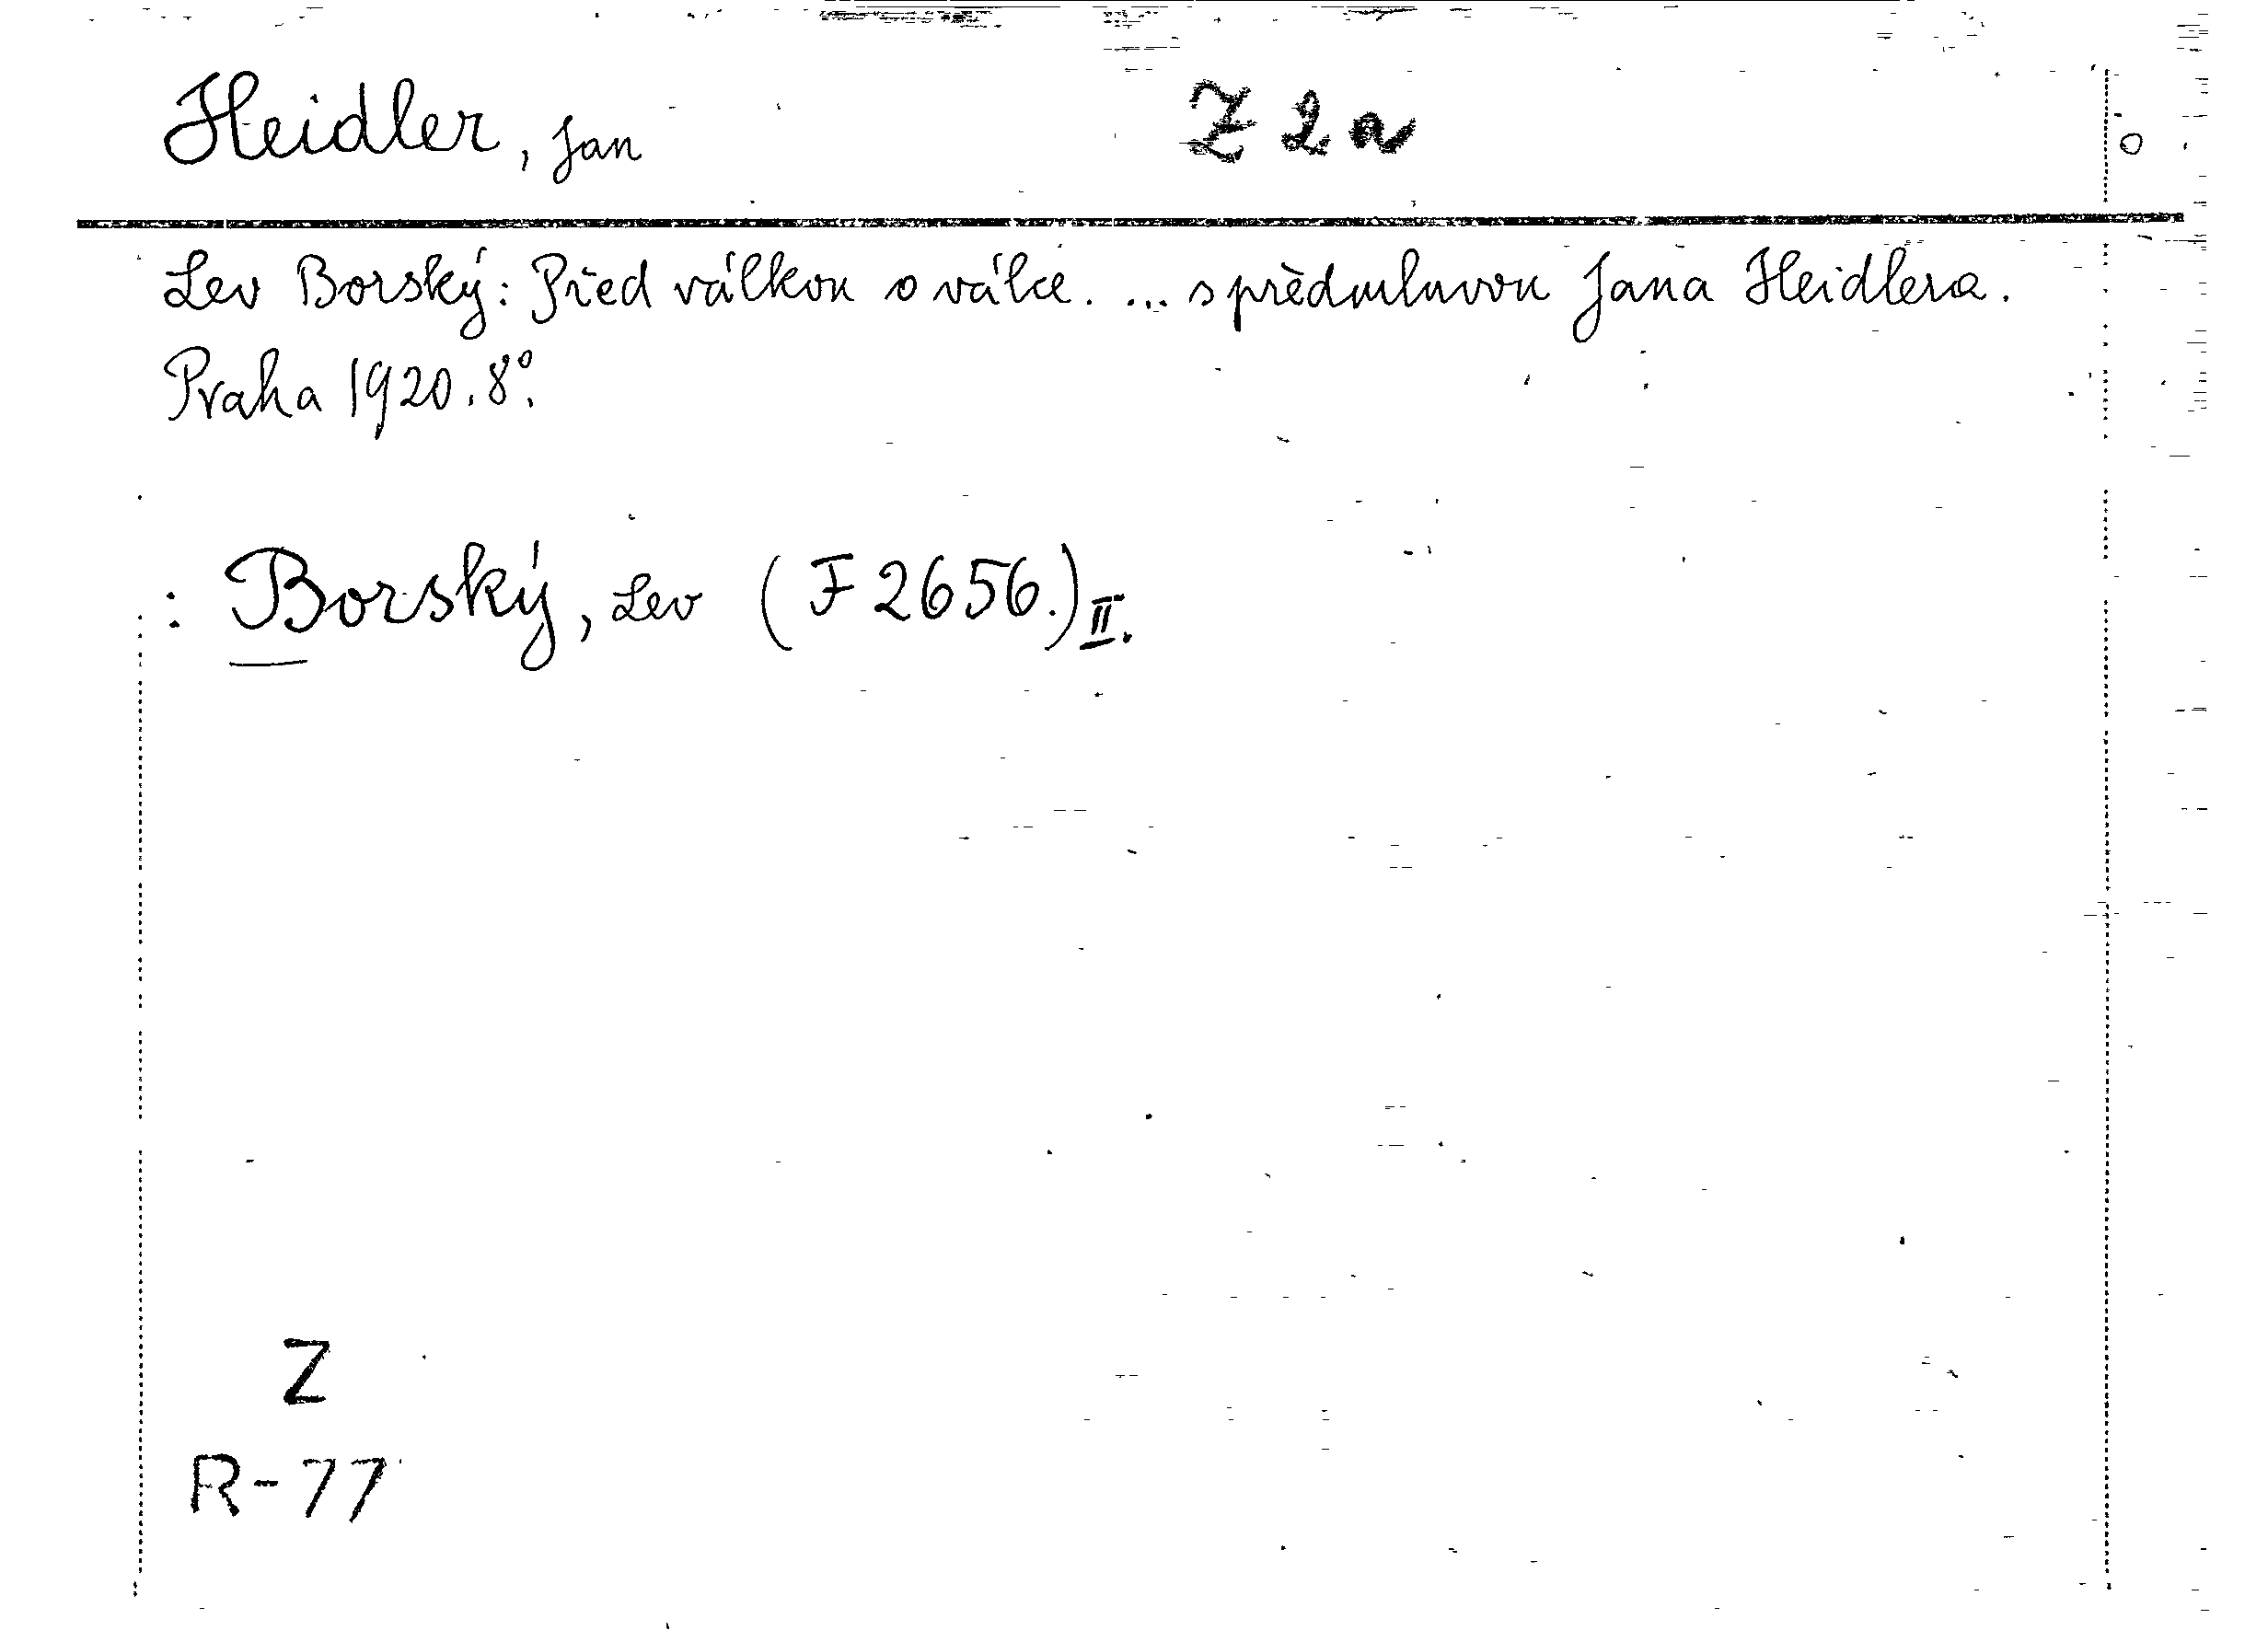 Heidler, Jan Z 2a
Lev Borský: Před válkou o válce. ... s předmluvou Jana Heidlera.
Praha 1920. 8°.
: Borský, Lev (F 2656.) II.
Z
R-77